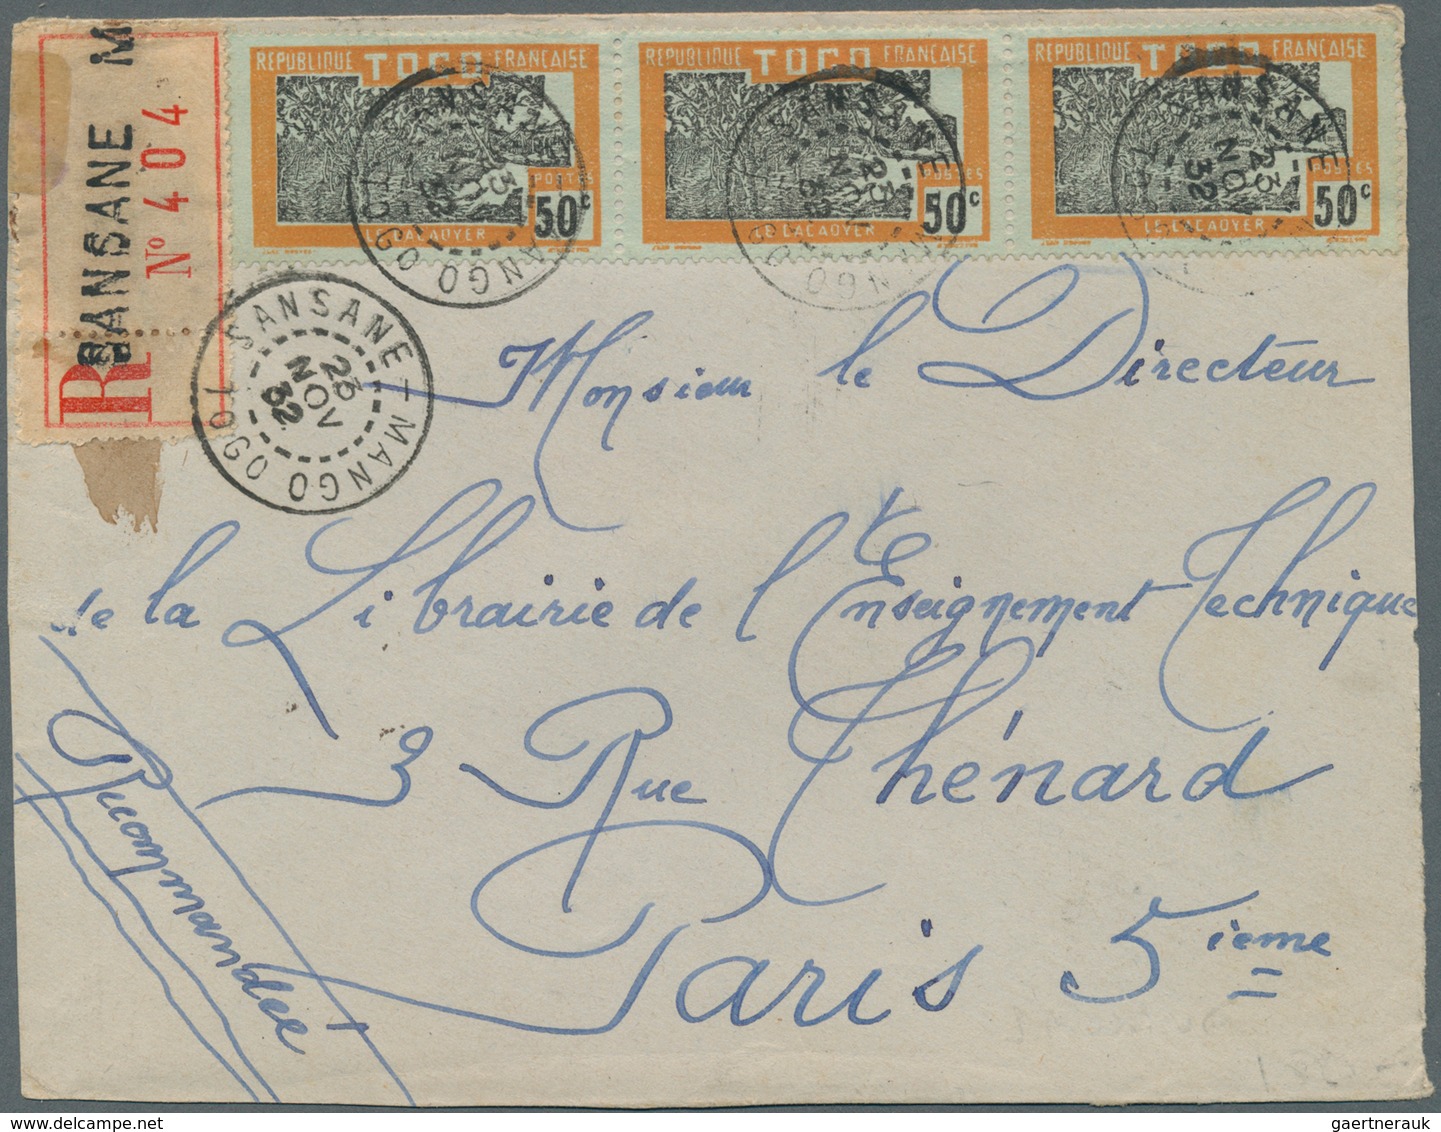 SANSANE M
R N° 404
RÉPUBLIQUE TOGO FRANÇAISE
POSTES
50c
LE CACAOYER
RÉPUBLIQUE TOGO FRANÇAISE
POSTES
50c
LE CACAOYER
RÉPUBLIQUE TOGO FRANÇAISE
POSTES
50c
LE CACAOYER
SANSANE-MANGO TOGO
23
NOV
32
SANSANE-MANGO TOGO
23
NOV
32
SANSANE-MANGO TOGO
23
NOV
32
SANSANE
23
NOV
32
Monsieur le Directeur
de la Librairie de l'Enseignement Technique
3 Rue Thénard
Paris 5ieme
Recommandée
gaertnerauk
delcampe.net